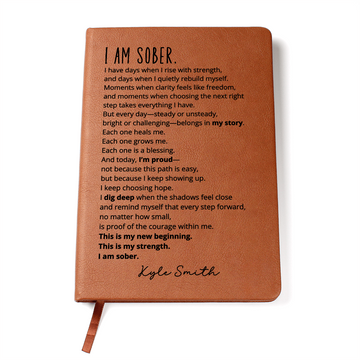 I AM SOBER.
I have days when I rise with strength,
and days when I quietly rebuild myself.
Moments when clarity feels like freedom,
and moments when choosing the next right
step takes everything I have.
But every day—steady or unsteady,
bright or challenging—belongs in my story.
Each one heals me.
Each one grows me.
Each one is a blessing.
And today, I'm proud—
not because this path is easy,
but because I keep showing up.
I keep choosing hope.
I dig deep when the shadows feel close
and remind myself that every step forward,
no matter how small,
is proof of the courage within me.
This is my new beginning.
This is my strength.
I am sober.
Kyle Smith